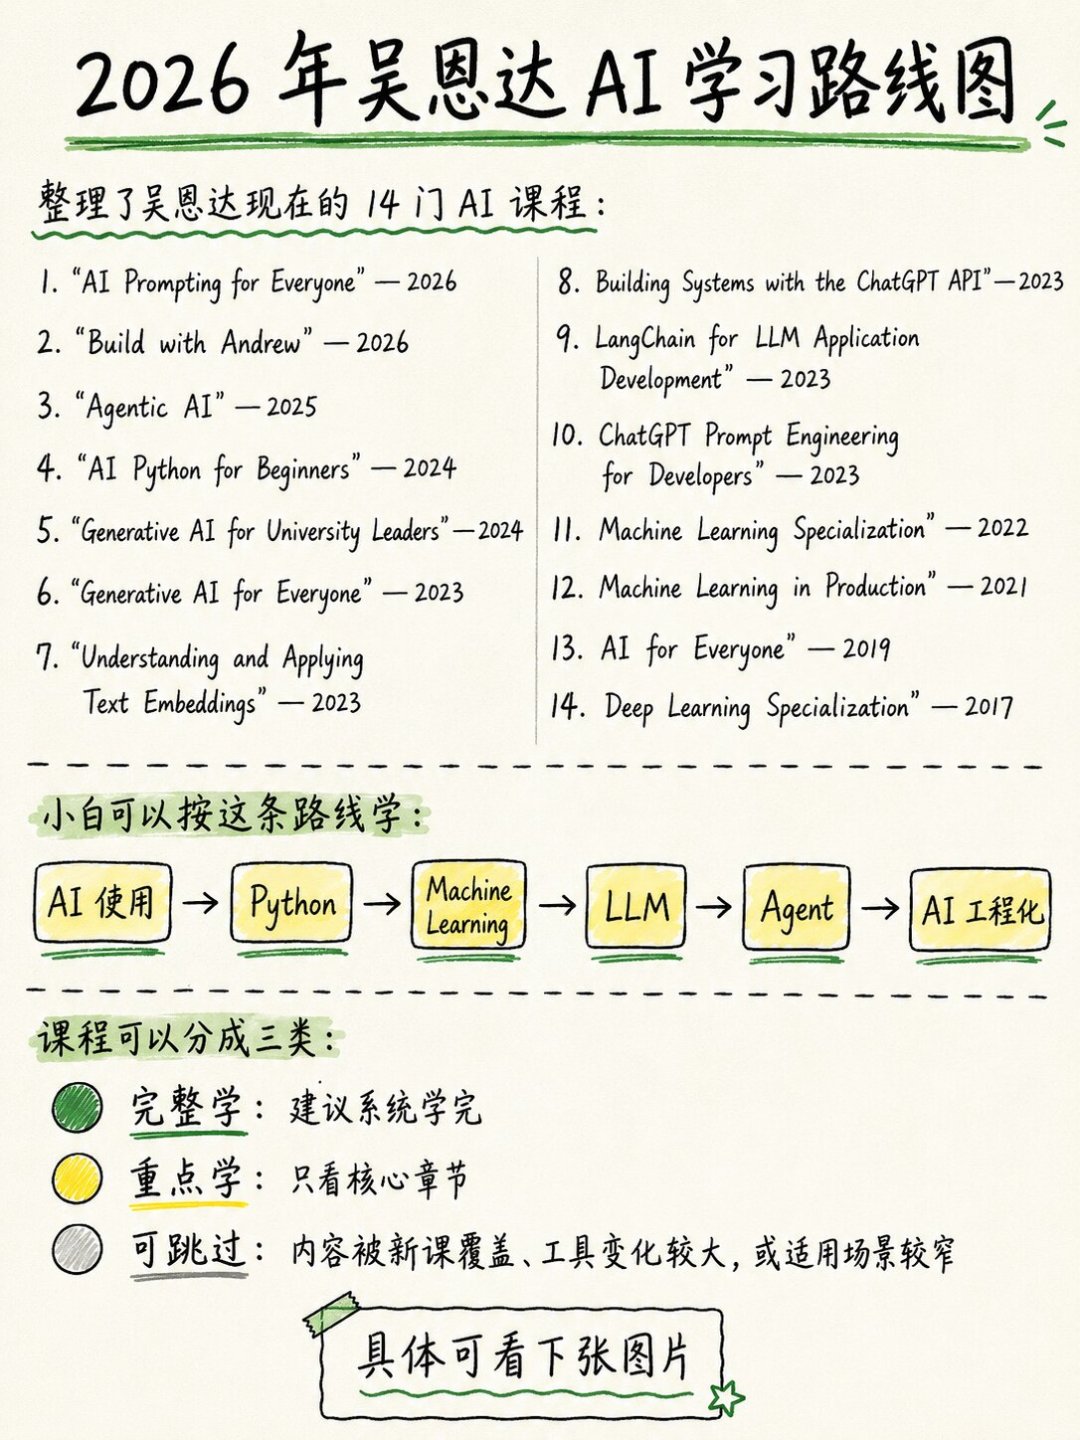 2026 年吴恩达 AI 学习路线图
整理了吴恩达现在的 14 门 AI 课程：
1. “AI Prompting for Everyone” — 2026
2. “Build with Andrew” — 2026
3. “Agentic AI” — 2025
4. “AI Python for Beginners” — 2024
5. “Generative AI for University Leaders” — 2024
6. “Generative AI for Everyone” — 2023
7. “Understanding and Applying
Text Embeddings” — 2023
8. Building Systems with the ChatGPT API” — 2023
9. LangChain for LLM Application
Development” — 2023
10. ChatGPT Prompt Engineering
for Developers” — 2023
11. Machine Learning Specialization” — 2022
12. Machine Learning in Production” — 2021
13. AI for Everyone” — 2019
14. Deep Learning Specialization” — 2017
小白可以按这条路线学：
AI 使用 → Python → Machine Learning → LLM → Agent → AI 工程化
课程可以分成三类：
完整学：建议系统学完
重点学：只看核心章节
可跳过：内容被新课覆盖、工具变化较大，或适用场景较窄
具体可看下张图片